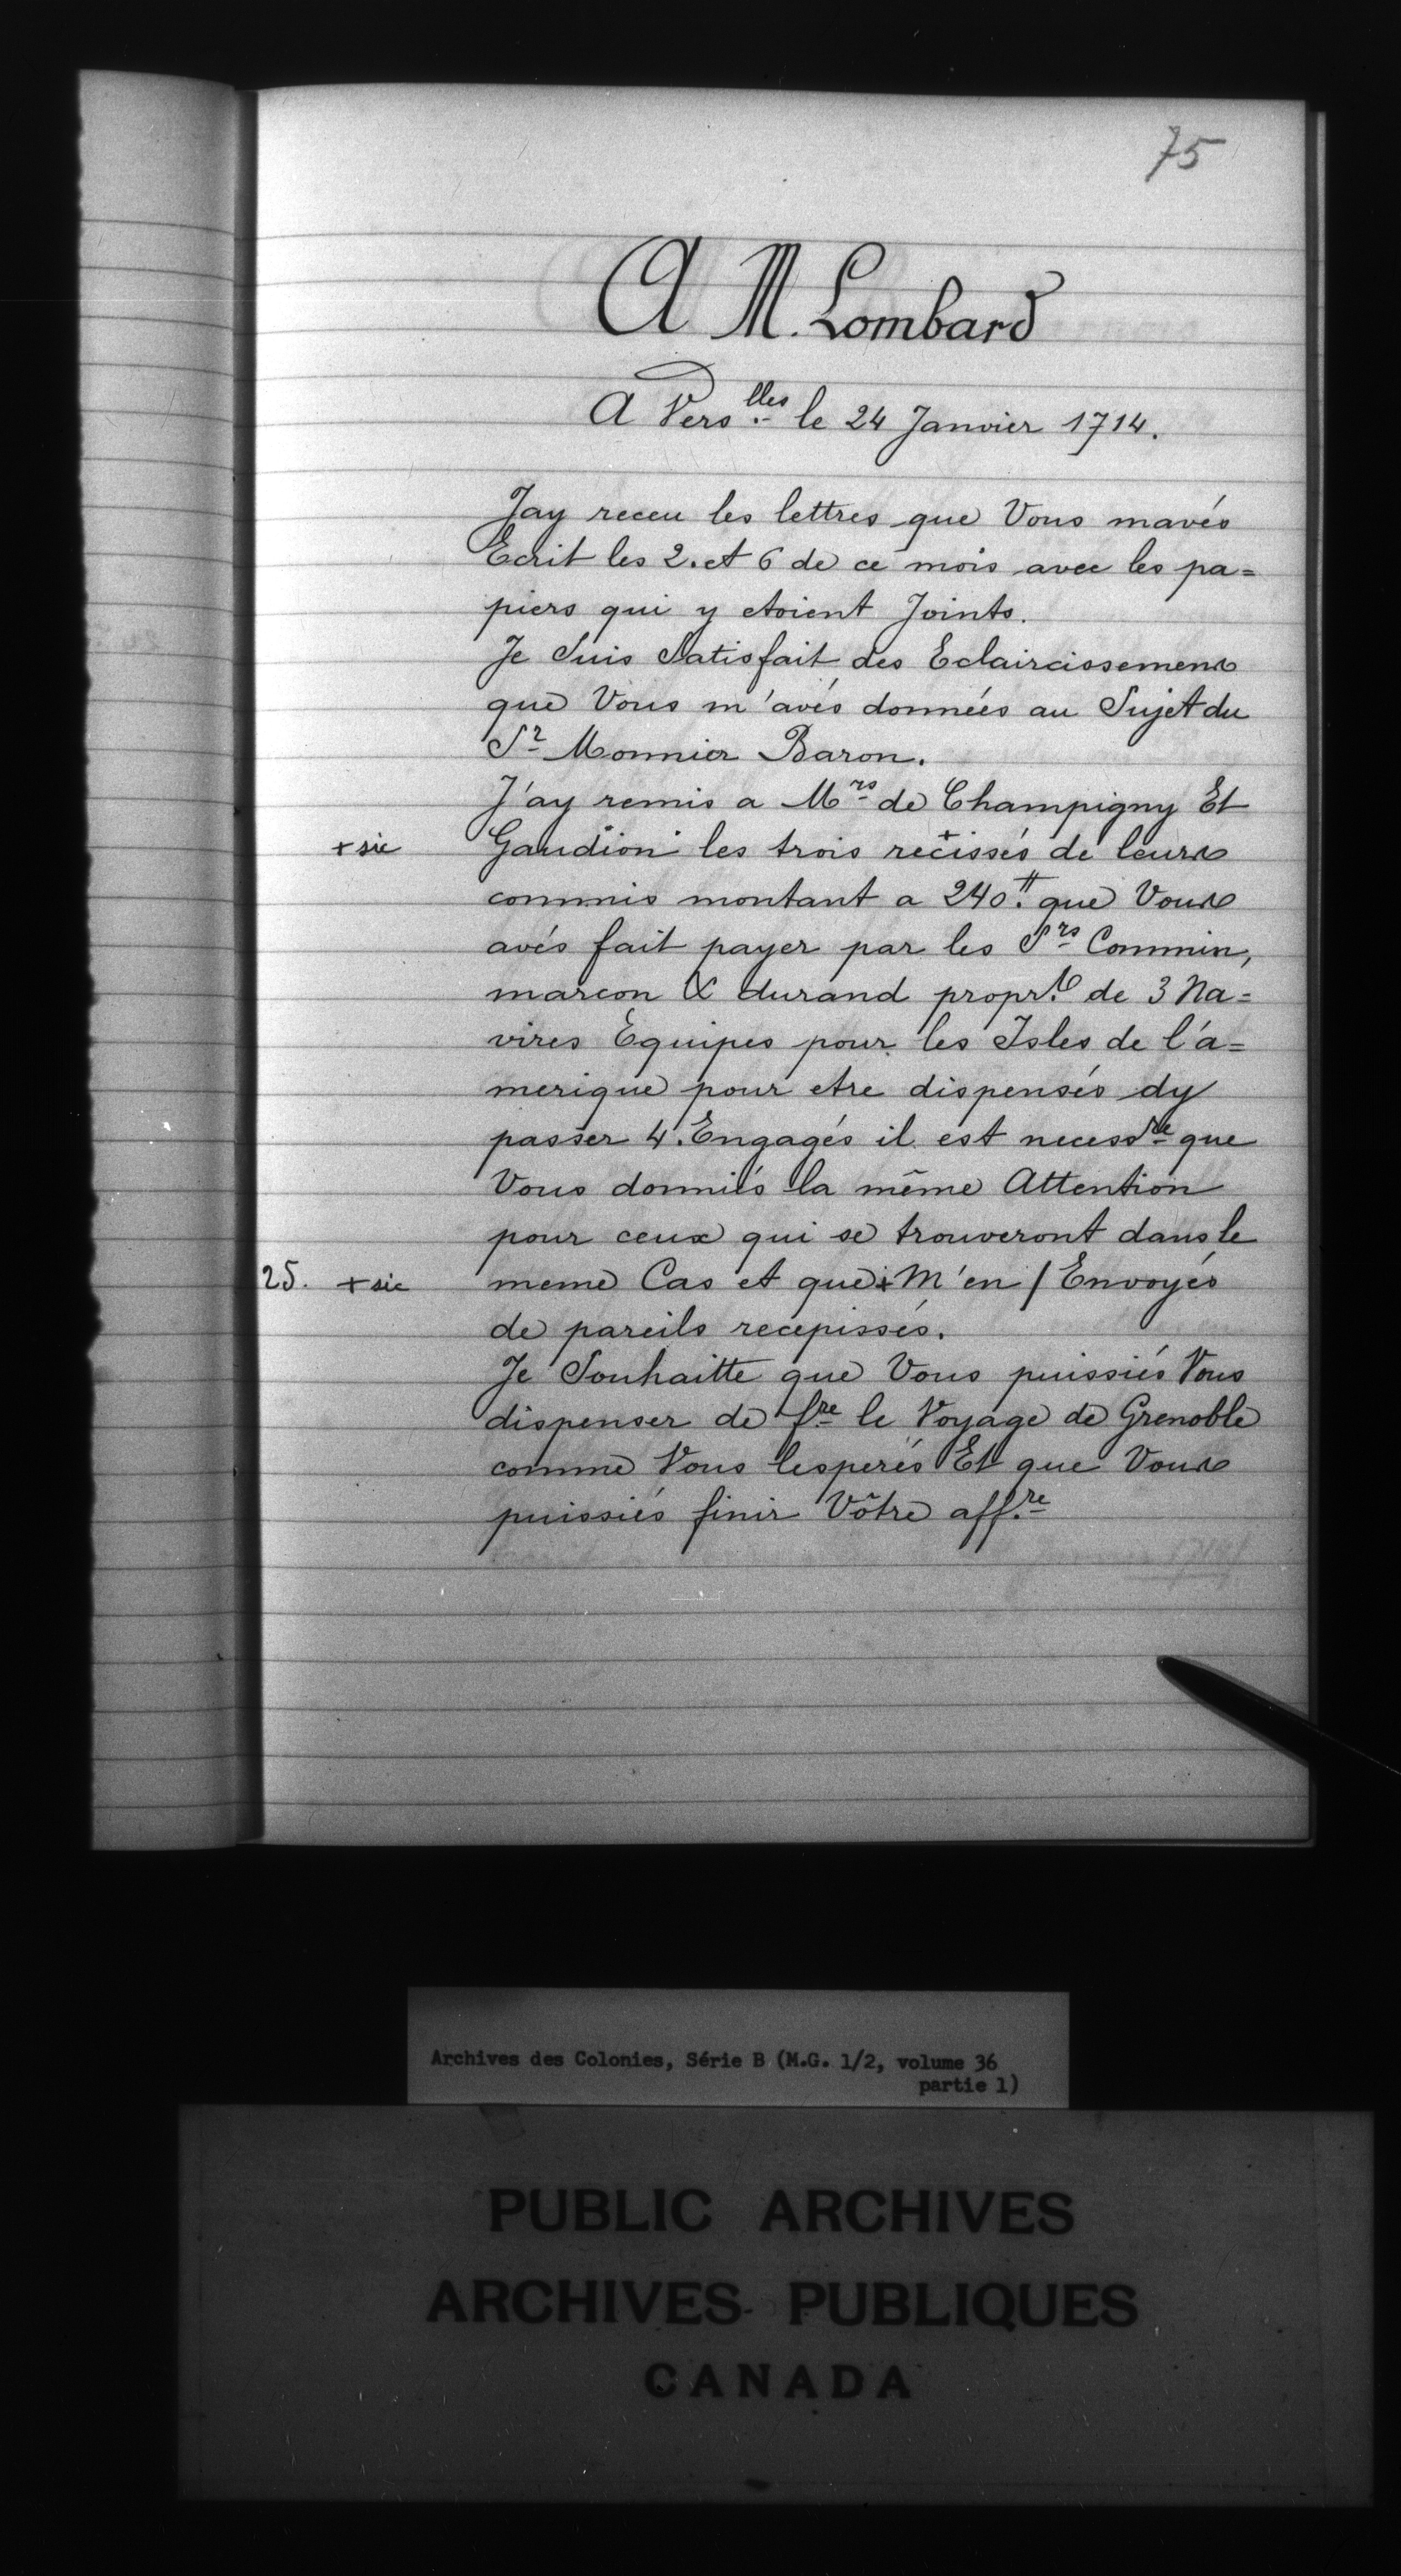 75
A M. Lombard
A Vers.lles le 24 Janvier 1714.
Jay receu les lettres que Vous mavés
Ecrit les 2. et 6 de ce mois avec les pa=
piers qui y etoient Joints.
Je Suis Satisfait des Eclaircissemens
que Vous m'avés données au Sujet du
Sr Monnier Baron.
J'ay remis a Mrs de Champigny Et
+ sic Gaudion les trois recissés + de leurs
commis montant a 240.ᵗᵗ que Vous
avés fait payer par les Srs Commin,
marcon & durand propr.s de 3 Na=
vires Equipes pour les Isles de l'a=
merique pour etre dispensés dy
passer 4. Engagés il est necessre que
Vous donniés la même Attention
pour ceux qui se trouveront dans le
25. + sic meme Cas et que + M'en / Envoyés
de pareils recepissés.
Je Souhaitte que Vous puissiés Vous
dispenser de fre le Voyage de Grenoble
comme Vous lesperés Et que Vous
puissiés finir Vôtre aff.re
Archives des Colonies, Série B (M.G. 1/2, volume 36
partie 1)
PUBLIC ARCHIVES
ARCHIVES PUBLIQUES
CANADA